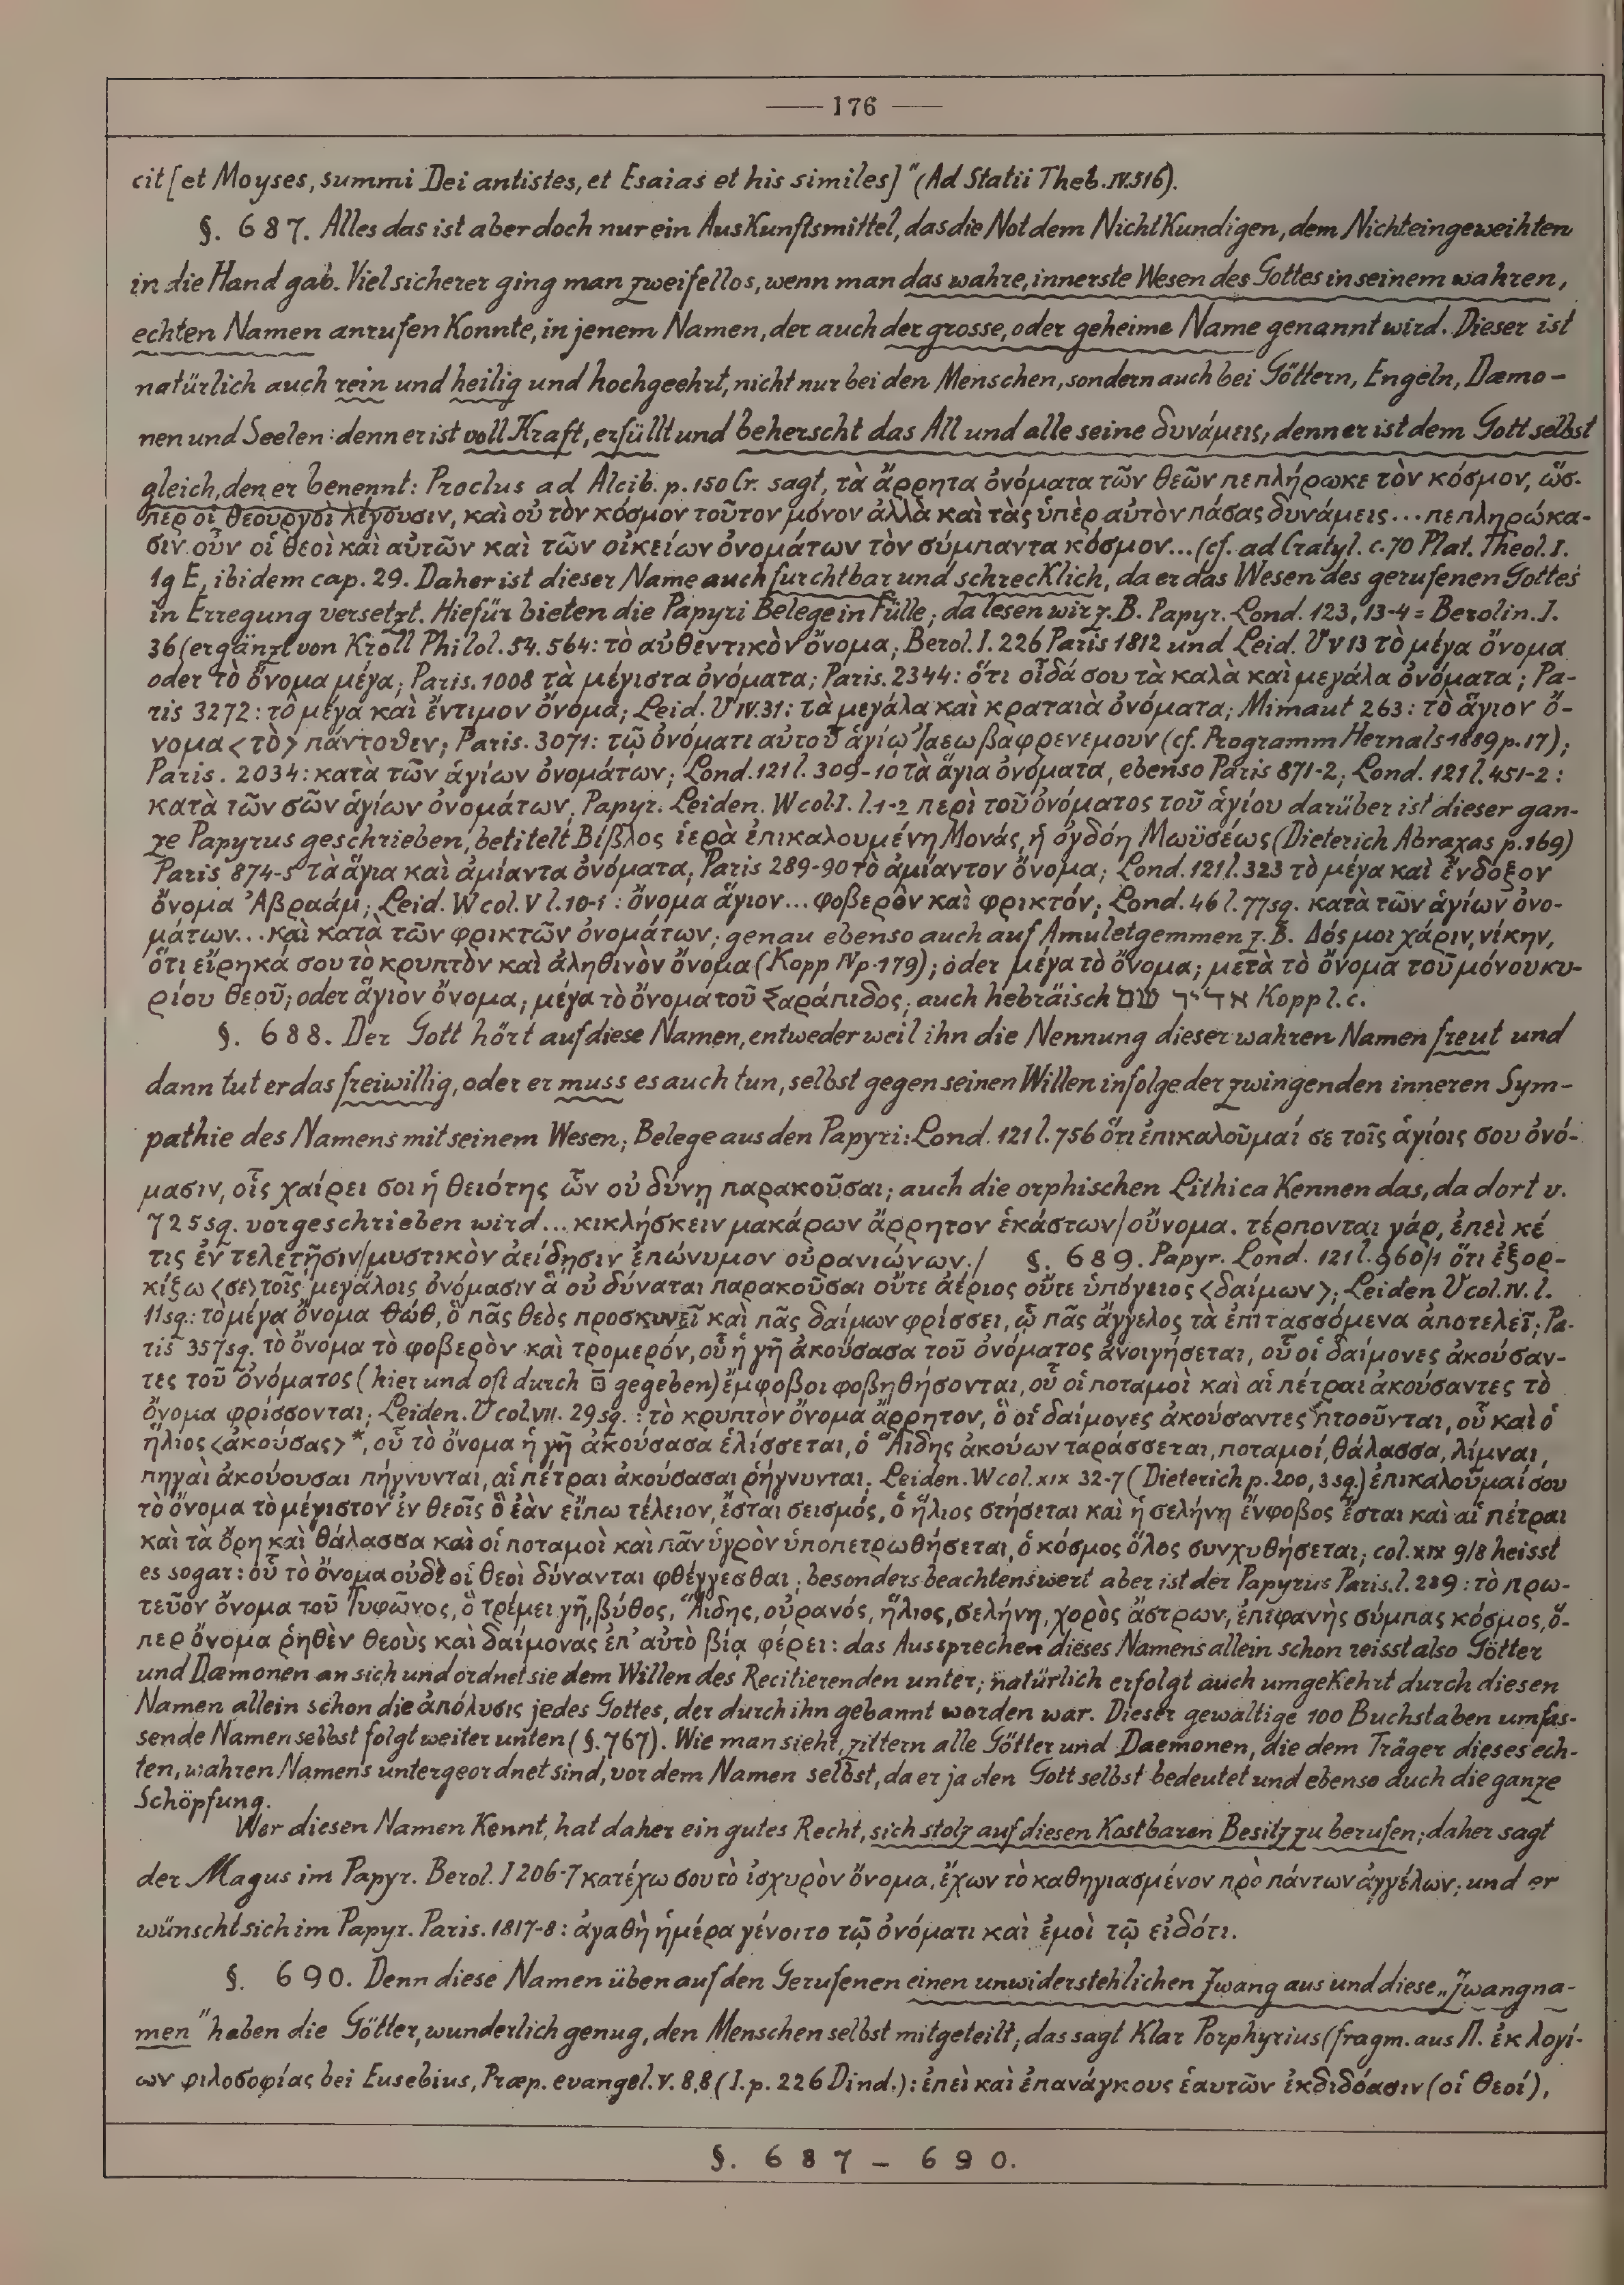 — 176 —
cit [et Moyses, summi Dei antistes, et Esaias et his similes]" (Ad Statii Theb. IV. 516).
§. 687. Alles das ist aber doch nur ein Auskunftsmittel, das die Not dem Nichtkundigen, dem Nichteingeweihten
in die Hand gab. Viel sicherer ging man zweifellos, wenn man das wahre, innerste Wesen des Gottes in seinem wahren,
echten Namen anrufen konnte, in jenem Namen, der auch der grosse, oder geheime Name genannt wird. Dieser ist
natürlich auch rein und heilig und hochgeehrt, nicht nur bei den Menschen, sondern auch bei Göttern, Engeln, Dæmo-
nen und Seelen: denn er ist voll Kraft, erfüllt und beherscht das All und alle seine δυνάμεις, denn er ist dem Gott selbst
gleich, den er benennt: Proclus ad Alcib. p. 150 Cr. sagt, τὰ ἄρρητα ὀνόματα τῶν θεῶν πεπλήρωκε τὸν κόσμον, ὥσ-
περ οἱ θεουργοὶ λέγουσιν, καὶ οὐ τὸν κόσμον τοῦτον μόνον ἀλλὰ καὶ τὰς ὑπὲρ αὐτὸν πάσας δυνάμεις... πεπληρώκα-
σιν οὖν οἱ θεοὶ καὶ αὐτῶν καὶ τῶν οἰκείων ὀνομάτων τὸν σύμπαντα κόσμον... (cf. ad Cratyl. c. 70 Plat. Theol. I.
19 E, ibidem cap. 29. Daher ist dieser Name auch furchtbar und schrecklich, da er das Wesen des gerufenen Gottes
in Erregung versetzt. Hiefür bieten die Papyri Belege in Fülle; da lesen wir z. B. Papyr. Lond. 123, 13-4 = Berolin. I.
36 (ergänzt von Kroll Philol. 54. 564: τὸ αὐθεντικὸν ὄνομα; Berol. I. 226 Paris 1812 und Leid. V V 13 τὸ μέγα ὄνομα
oder τὸ ὄνομα μέγα; Paris. 1008 τὰ μέγιστα ὀνόματα; Paris. 2344: ὅτι οἶδά σου τὰ καλὰ καὶ μεγάλα ὀνόματα; Pa-
ris 3272: τὸ μέγα καὶ ἔντιμον ὄνομα; Leid. V IV. 31: τὰ μεγάλα καὶ κραταιὰ ὀνόματα; Mimaut 263: τὸ ἅγιον ὄ-
νομα <τὸ> πάντοθεν; Paris. 3071: τῷ ὀνόματι αὐτοῦ ἁγίῳ Ἰαεω βαφρενεμουν (cf. Programm Hernals 1889 p. 17);
Paris. 2034: κατὰ τῶν ἁγίων ὀνομάτων; Lond. 121 l. 309-10 τὰ ἅγια ὀνόματα, ebenso Paris 871-2; Lond. 121 l. 451-2:
κατὰ τῶν σῶν ἁγίων ὀνομάτων, Papyr. Leiden. W col. I. l. 1-2 περὶ τοῦ ὀνόματος τοῦ ἁγίου darüber ist dieser gan-
ze Papyrus geschrieben, betitelt Βίβλος ἱερὰ ἐπικαλουμένη Μονάς, ἢ ὀγδόη Μωϋσέως (Dieterich Abraxas p. 169)
Paris 874-5 τὰ ἅγια καὶ ἀμίαντα ὀνόματα; Paris 289-90 τὸ ἀμίαντον ὄνομα; Lond. 121 l. 323 τὸ μέγα καὶ ἔνδοξον
ὄνομα Ἀβραάμ; Leid. W col. V l. 10-1: ὄνομα ἅγιον... φοβερὸν καὶ φρικτόν; Lond. 46 l. 77 sq. κατὰ τῶν ἁγίων ὀνο-
μάτων... καὶ κατὰ τῶν φρικτῶν ὀνομάτων; genau ebenso auch auf Amuletgemmen z. B. Δός μοι χάριν, νίκην,
ὅτι εἴρηκά σου τὸ κρυπτὸν καὶ ἀληθινὸν ὄνομα (Kopp IV p. 179); oder μέγα τὸ ὄνομα; μετὰ τὸ ὄνομα τοῦ μόνου κυ-
ρίου θεοῦ; oder ἅγιον ὄνομα; μέγα τὸ ὄνομα τοῦ Σαράπιδος; auch hebräisch אדיר שם Kopp l. c.
§. 688. Der Gott hört auf diese Namen, entweder weil ihn die Nennung dieser wahren Namen freut und
dann tut er das freiwillig, oder er muss es auch tun, selbst gegen seinen Willen infolge der zwingenden inneren Sym-
pathie des Namens mit seinem Wesen; Belege aus den Papyri: Lond. 121 l. 756 ὅτι ἐπικαλοῦμαί σε τοῖς ἁγίοις σου ὀνό-
μασιν, οἷς χαίρει σοι ἡ θειότης ὧν οὐ δύνῃ παρακοῦσαι; auch die orphischen Lithica kennen das, da dort v.
725 sq. vorgeschrieben wird... κικλήσκειν μακάρων ἄρρητον ἑκάστων/οὔνομα. τέρπονται γάρ, ἐπεί κέ
τις ἐν τελετῇσιν/μυστικὸν ἀείδησιν ἐπώνυμον οὐρανιώνων./ §. 689. Papyr. Lond. 121 l. 960/1 ὅτι ἐξορ-
κίζω <σε> τοῖς μεγάλοις ὀνόμασιν ἃ οὐ δύναται παρακοῦσαι οὔτε ἀέριος οὔτε ὑπόγειος <δαίμων>; Leiden V col. IV. l.
11 sq.: τὸ μέγα ὄνομα Θώθ, ὃ πᾶς θεὸς προσκυνεῖ καὶ πᾶς δαίμων φρίσσει, ᾧ πᾶς ἄγγελος τὰ ἐπιτασσόμενα ἀποτελεῖ; Pa-
ris 357 sq. τὸ ὄνομα τὸ φοβερὸν καὶ τρομερόν, οὗ ἡ γῆ ἀκούσασα τοῦ ὀνόματος ἀνοιγήσεται, οὗ οἱ δαίμονες ἀκούσαν-
τες τοῦ ὀνόματος (hier und oft durch gegeben) ἔμφοβοι φοβηθήσονται, οὗ οἱ ποταμοὶ καὶ αἱ πέτραι ἀκούσαντες τὸ
ὄνομα φρίσσονται; Leiden. V col. VII. 29 sq.: τὸ κρυπτὸν ὄνομα ἄρρητον, ὃ οἱ δαίμονες ἀκούσαντες πτοοῦνται, οὗ καὶ ὁ
ἥλιος <ἀκούσας>*, οὗ τὸ ὄνομα ἡ γῆ ἀκούσασα ἑλίσσεται, ὁ Ἅιδης ἀκούων ταράσσεται, ποταμοί, θάλασσα, λίμναι,
πηγαὶ ἀκούουσαι πήγνυνται, αἱ πέτραι ἀκούσασαι ῥήγνυνται; Leiden. W col. XIX 32-7 (Dieterich p. 200, 3 sq.) ἐπικαλοῦμαί σου
τὸ ὄνομα τὸ μέγιστον ἐν θεοῖς ὃ ἐὰν εἴπω τέλειον, ἔσται σεισμός, ὁ ἥλιος στήσεται καὶ ἡ σελήνη ἔνφοβος ἔσται καὶ αἱ πέτραι
καὶ τὰ ὄρη καὶ θάλασσα καὶ οἱ ποταμοὶ καὶ πᾶν ὑγρὸν ὑποπετρωθήσεται, ὁ κόσμος ὅλος συνχυθήσεται; col. XIX 9/8 heisst
es sogar: οὗ τὸ ὄνομα οὐδὲ οἱ θεοὶ δύνανται φθέγγεσθαι; besonders beachtenswert aber ist der Papyrus Paris. l. 239: τὸ πρω-
τεῦον ὄνομα τοῦ Τυφῶνος, ὃ τρέμει γῆ, βύθος, Ἅιδης, οὐρανός, ἥλιος, σελήνη, χορὸς ἄστρων, ἐπιφανὴς σύμπας κόσμος, ὅ-
περ ὄνομα ῥηθὲν θεοὺς καὶ δαίμονας ἐπ' αὐτὸ βίᾳ φέρει: das Aussprechen dieses Namens allein schon reisst also Götter
und Dæmonen an sich und ordnet sie dem Willen des Recitierenden unter; natürlich erfolgt auch umgekehrt durch diesen
Namen allein schon die ἀπόλυσις jedes Gottes, der durch ihn gebannt worden war. Dieser gewaltige 100 Buchstaben umfas-
sende Namen selbst folgt weiter unten (§. 767). Wie man sieht, zittern alle Götter und Daemonen, die dem Träger dieses ech-
ten, wahren Namens untergeordnet sind, vor dem Namen selbst, da er ja den Gott selbst bedeutet und ebenso auch die ganze
Schöpfung.
Wer diesen Namen kennt, hat daher ein gutes Recht, sich stolz auf diesen kostbaren Besitz zu berufen; daher sagt
der Magus im Papyr. Berol. I 206-7 κατέχω σου τὸ ἰσχυρὸν ὄνομα, ἔχων τὸ καθηγιασμένον πρὸ πάντων ἀγγέλων; und er
wünscht sich im Papyr. Paris. 1817-8: ἀγαθὴ ἡμέρα γένοιτο τῷ ὀνόματι καὶ ἐμοὶ τῷ εἰδότι.
§. 690. Denn diese Namen üben auf den Gerufenen einen unwiderstehlichen Zwang aus und diese „Zwangna-
men" haben die Götter, wunderlich genug, den Menschen selbst mitgeteilt; das sagt klar Porphyrius (fragm. aus Π. ἐκ λογί-
ων φιλοσοφίας bei Eusebius, Præp. evangel. V. 8,8 (I. p. 226 Dind.): ἐπεὶ καὶ ἐπανάγκους ἑαυτῶν ἐκδιδόασιν (οἱ θεοί),
§. 687 – 690.